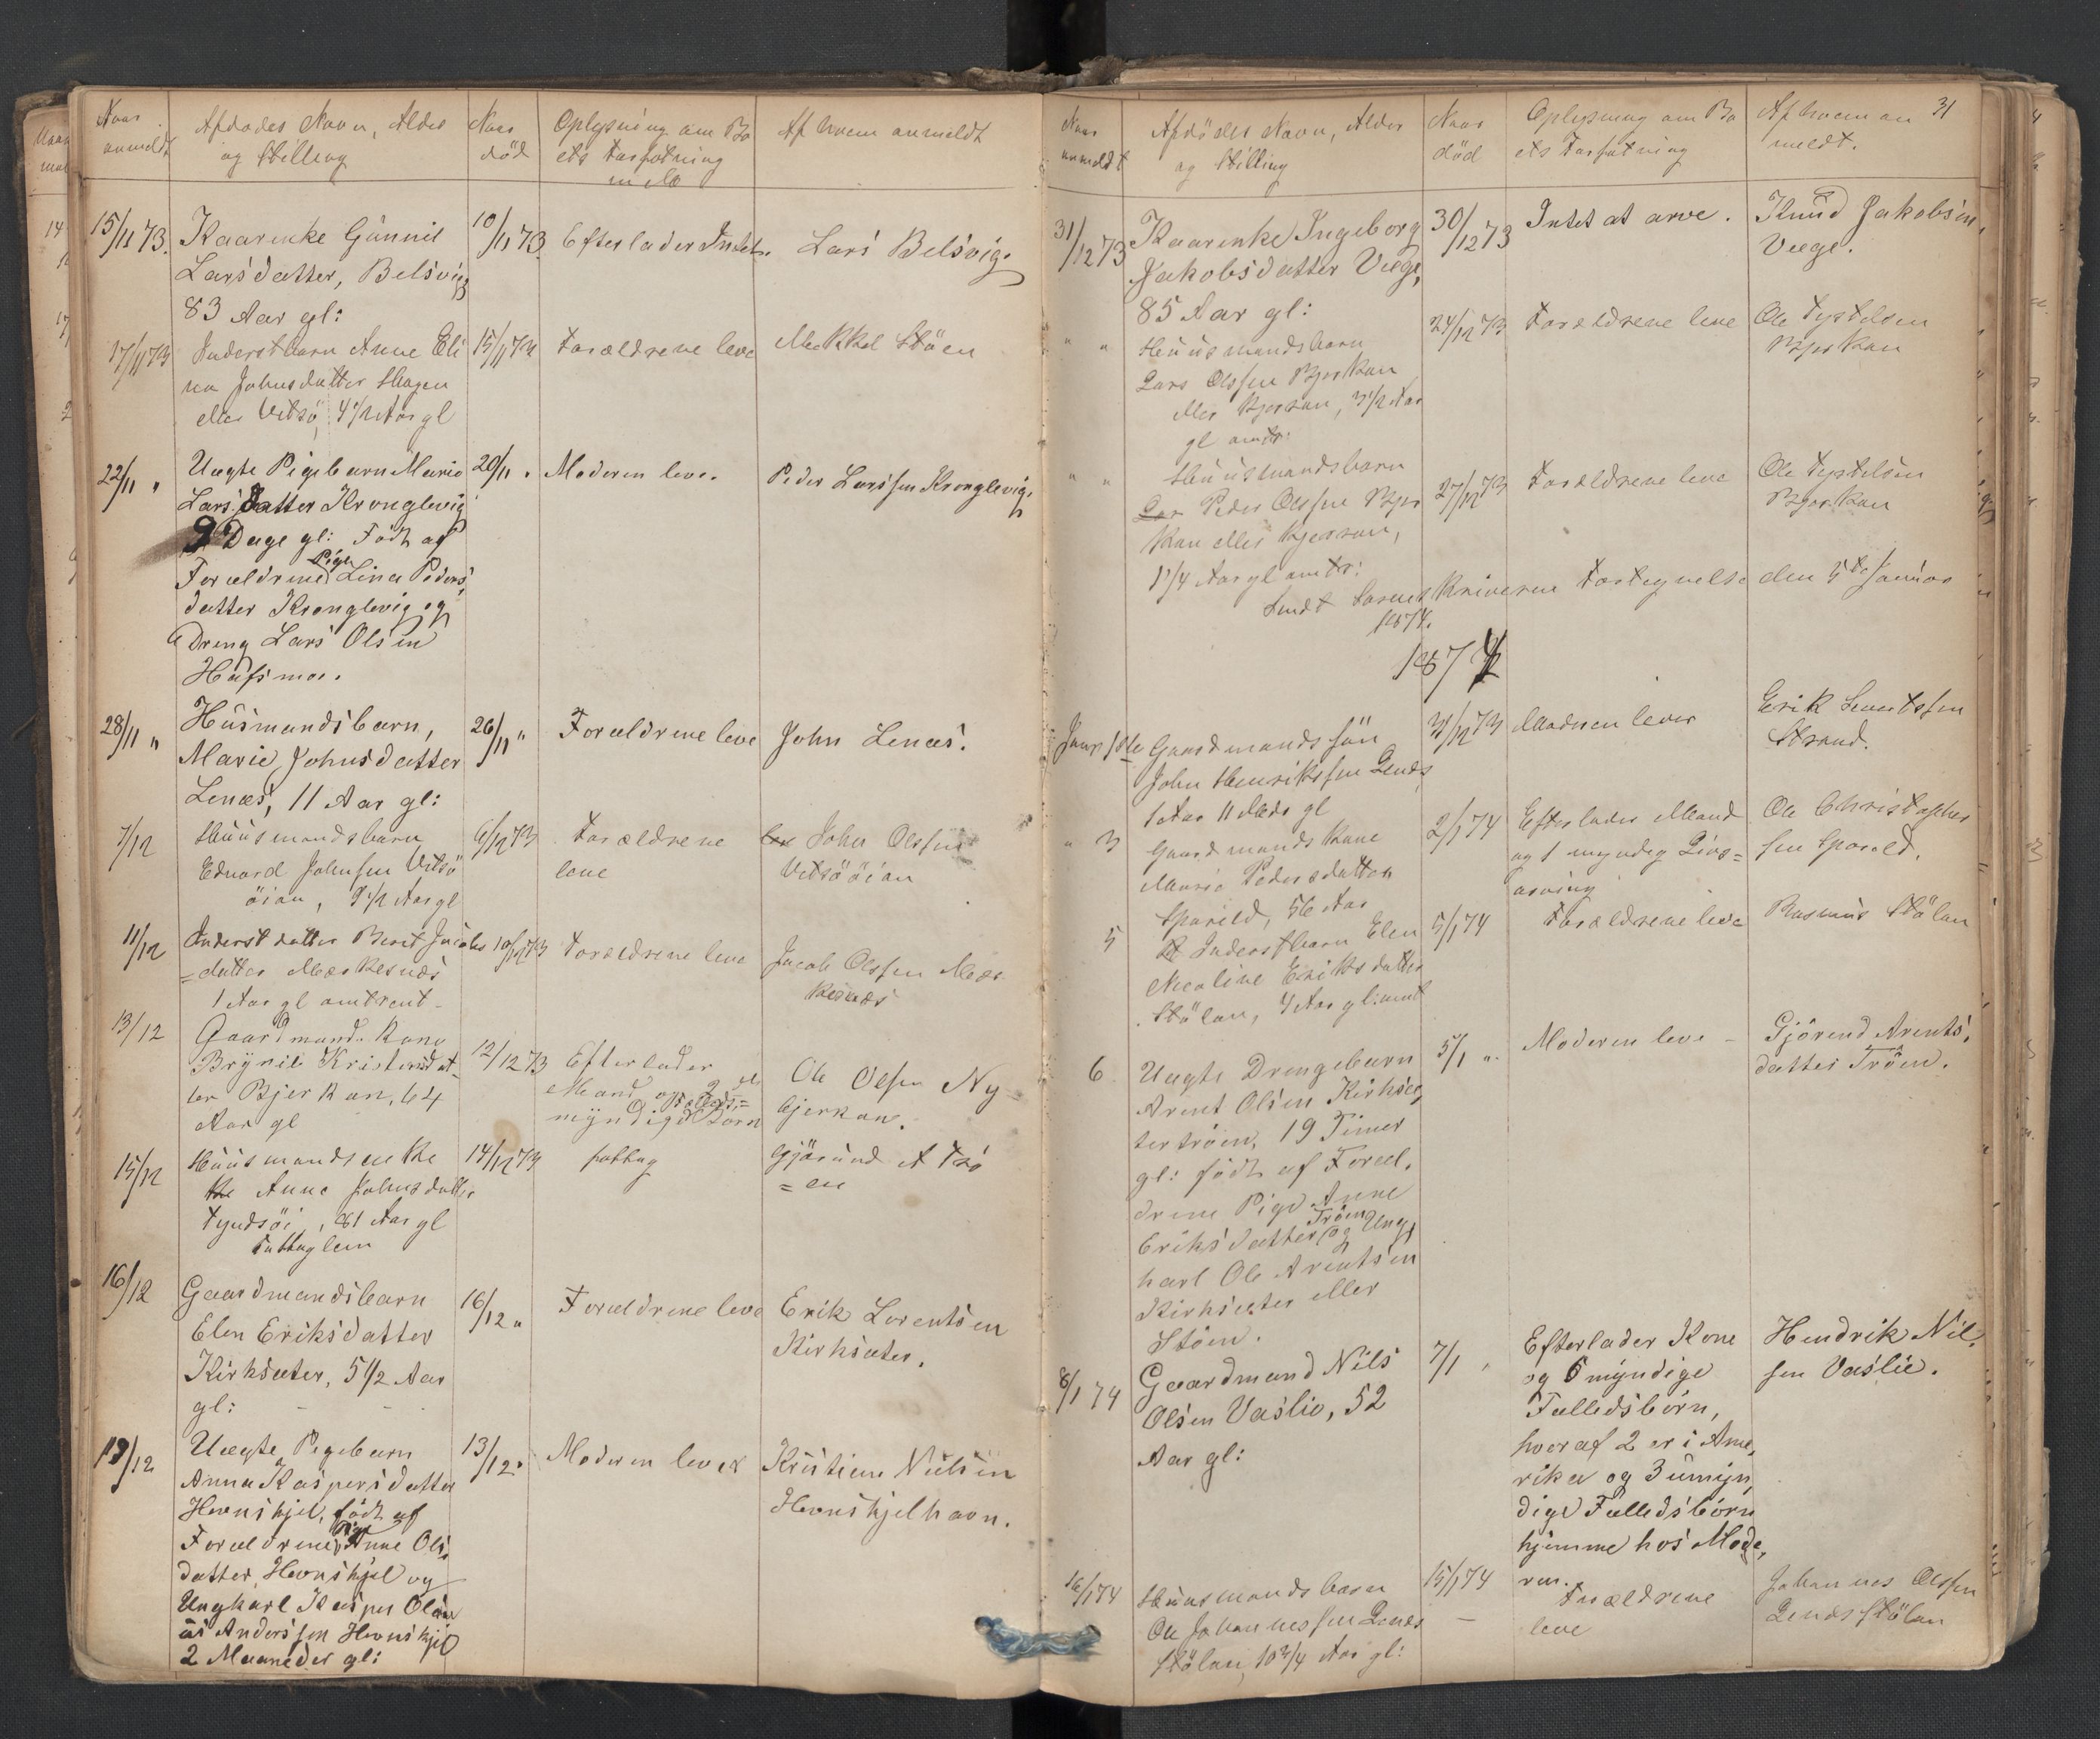 Naar anmeldt
Afdødes Navn, Alder og Stilling
Naar död
Oplysning om Boets Forfatning
Af hvem anmeldt
15/11 73.
Kaarenke Günnil
Larsdatter, Belsvig
83 Aar gl:
10/11 73.
Efterlader Intet.
Lars Belsvig.
17/11 73
Inderstbarn Anne Eli
na Johnsdatter Hagen
eller Vitsö, 4 1/2 Aar gl
15/11 73
Forældrene leve
Mekkel Stöen
22/11 "
Uægte Pigebarn Marie
Lars Datter Kronglevig
9 Dage gl: Födt af
Forældrene Pige Lina Peders
datter Kronglevig og
Dreng Lars Olsen
Hüfsmo.
20/11 "
Moderen leve.
Peder Larssen Kronglevig.
28/11 "
Hüsmandsbarn,
Marie Johnsdatter
Lenæs, 11 Aar gl:
26/11 "
Forældrene leve
John Lenæs.
7/12
Huusmandsbarn
Edvard Johnsen Vitsö
öian, 9 1/2 Aar gl
6/12 73
Forældrene
leve
John Olssen
Vitsööian
11/12
Inderst datter Berit Jacobs
=datter Mærkesnæs
1 Aar gl omtrent
10/12 73
Forældrene leve
Jacob Olssen Mær
kesnæs
13/12
Gaardmands Kone
Brynil Kristensdat
ter Bjerkan, 64
Aar gl
12/12 73
Efterlader
Mand og 2 de
Fælleds=
myndige Born
Ole Olsen Ny
bjerkan.
15/12
Huusmandsenke
Anne Johnsdatter
Tyndsöi, 81 Aar gl
Fattiglem
14/12 73
fattig
Gjörund A Trö
=en
16/12
Gaardmandsbarn
Elen Eriksdatter
Kirksæter, 5 1/2 Aar
gl:
16/12 "
Forældrene leve
Erik Lorentsen
Kirksæter.
19/12
Uægte Pigebarn
Anna Kaspersdatter
Hevnskjel, födt af
Forældrene Pige Anne Ols
datter, Hevnskjel og
Ungkarl Kasper Olau
us Anderssen Hevnskjel
2 Maaneder gl:
13/12 "
Moderen lever
Kristian Nielsen
Hevnskjelhavn.
31
Naar anmeldt
Afdödes Navn, Alder og Stilling
Naar död
Oplysning om Boets Forfatning
Af hvem anmeldt.
31/12 73
Kaarenke Ingeborg
Jakobsdatter Vege,
85 Aar gl:
30/12 73
Intet at arve.
Knud Jakobsen
Veege.
" "
Huusmandsbarn
Lars Olssen Bjerkan
eller Kjersan, 3 1/2 Aar
gl omtr:
24/12 73
Forældrene leve
Ole Tystelsen
Bjerkan
" "
Huusmandsbarn
Peder Olssen Bjer
kan eller Kjersan,
1 3/4 Aar gl omtr:
27/12 73
Forældrene leve
Ole Tystelsen
Bjerkan
Sendt Sorenskriveren Fortegnelse den 5te Januar
1874.
1874
Janr 1ste
Gaardmands sön
John Henrikssen Lenæs
1 Aar 11 Mdr gl
31/12 73
Moderen lever
Erik Lorentssen
Strand.
" 3
Gaardmands Kone
Marie Pedersdatter
Sparild, 56 Aar
2/1 74
Efterlader Mand
og 1 myndig Livs=
arving
Ole Christopher
sen Sparild.
5
Inderstbarn Elen
Nicoline Eriksdatter
Stölan, 4 Aar gl:
5/1 74
Forældrene leve
Rasmus Stölan
6
Uægte Drengebarn
Arent Olsen Kirksæ
tertröen, 19 Timer
gl: födt af Foræl.
drene Pige Anne
Eriksdatter Tröen og Ung
karl Ole Arentsen
Kirksæter eller
Stöen.
5/1 "
Moderen leve
Gjörend Arents.
datter Tröen.
8/1 74
Gaardmand Nils
Olsen Vaslie, 52
Aar gl:
7/1 "
Efterlader Kone
og 6 myndige
Fælledsbörn,
hveraf 2 er i Ame,
rika og 3 ümyn
dige Fælledsbörn
hjemme hos Mode,
ren.
Hendrik Nil,
sen Vaslie.
16/1 74
Huusmandsbarn
Ole Johannessen Lenæs
Stölan, 10 3/4 Aar gl:
15/1 74
Forældrene
leve
Johannes Olssen
Lenæs Stölan